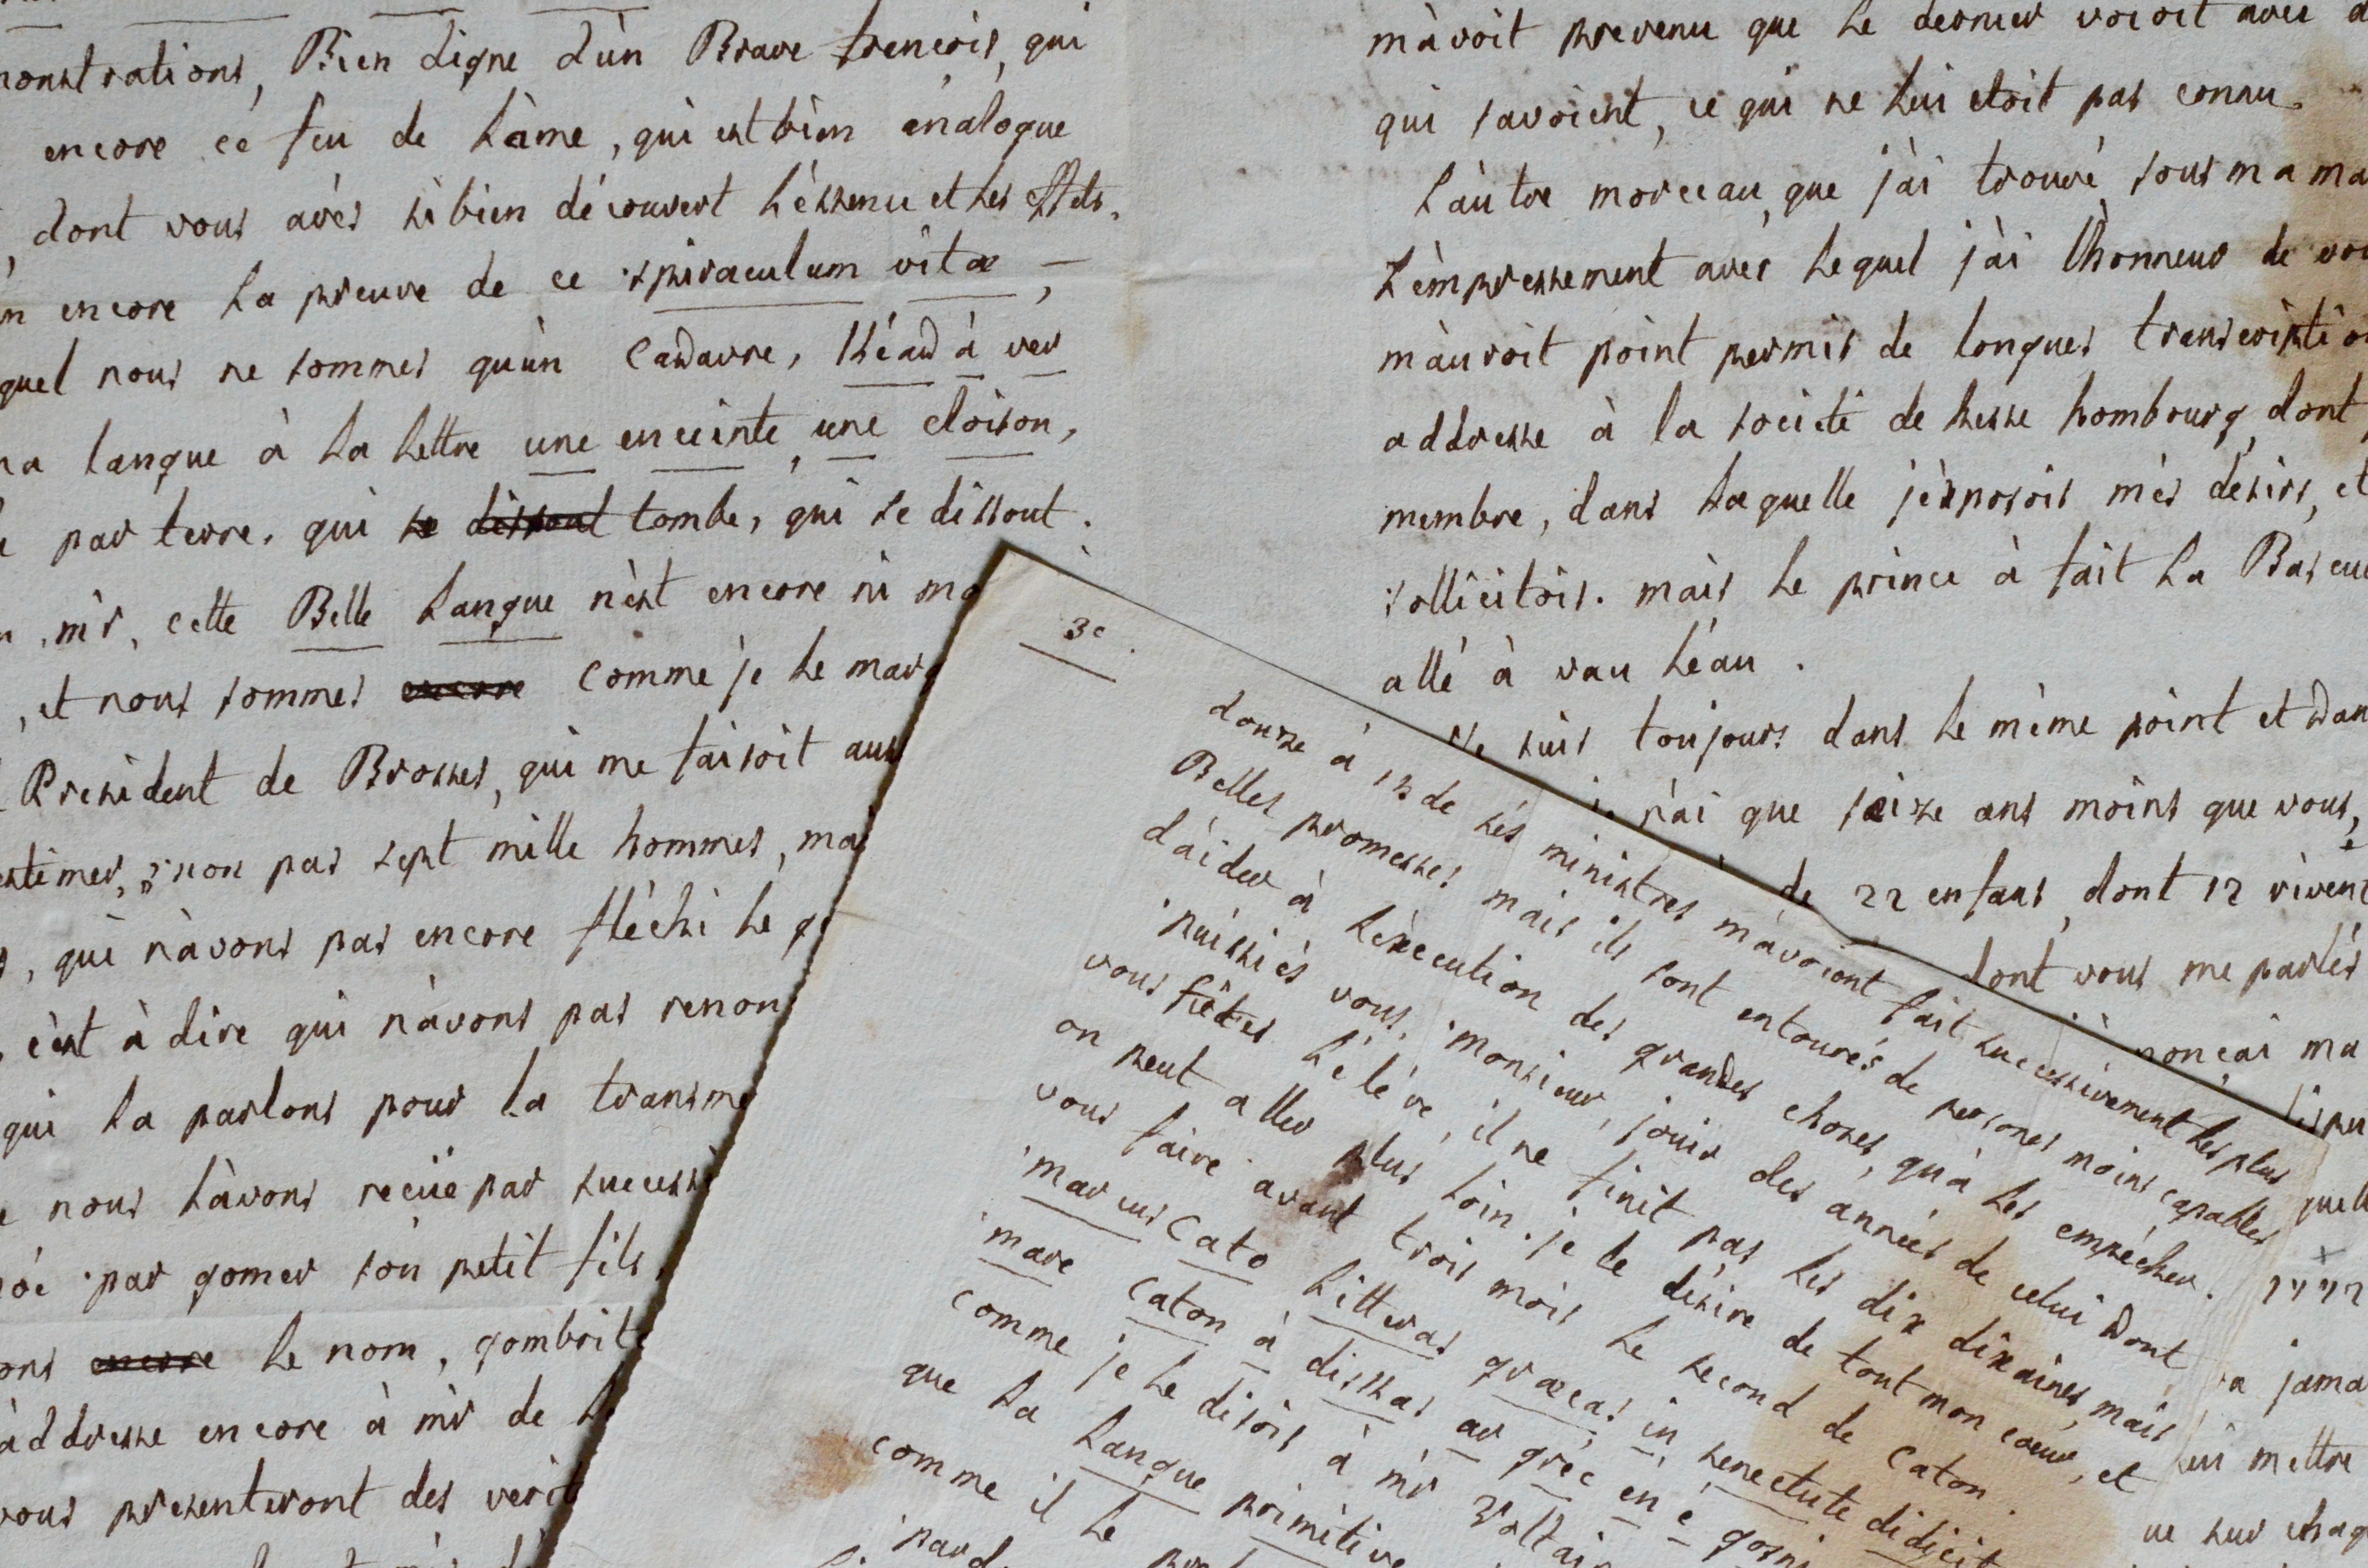 monstrations, Bien digne d'ùn Brave frençois, qui
encore ce feu de l'àme, qui est bien enalogue
dont vous avés si bien découvert l'éssence et les effets.
encore la preuve de ce spiraculum vitæ,
quel nous ne sommes qu'ùn Cadavre, kéad à ver
langue à la lettre une enceinte, une cloison,
par terre, qui se dissout tombe, qui se dissout.
mr, cette Belle Langue n'est encore ni mo
, et nous sommes encore comme je le marq
President de Brosses, qui me faisoit aus
estimer, non pas sept mille hommes, mai
, qui n'àvons pas encore fléchi le ge
, c'èst à dire qui n'àvons pas renon
qui la parlons pour la transme
nous l'àvons reçüe par successi
par gomer son petit fils,
ons encore le nom, gombrit
àddresse encore à mr de
vous presenteront des verit
m'àvoit prevenu que le dernier
qui savoient, ce qui ne lui etoit pas connu.
l'àutre morceau, que j'ài trouvé sous ma ma
L'èmpressement avec lequel j'ài l'honneur de vou
m'àuroit point permis de longues transcriptio
addresse à la societé de hesse hombourg, dont
membre, dans laquelle j'èxposois mès désirs, et
sollicitois. mais le prince à fait la Bascu
allé à vau l'éau.
Je suis toujours dans le mème point et dan
n'ai que seize ans moins que vous,
de 22 enfans, dont 12 vivent
dont vous me parlés
nonçai ma
quell
jama
lui mettre
sur chaq
3e
douze à 13 de sés ministres m'àvoient fait successivement les plus
Belles promesses mais ils sont entourés de personnes moins capables
d'aider à l'èxecution des grandes choses, qu'à les empécher.
puissiés vous, monsieur, jouir des années de celui dont
vous fêtes l'éléve, il ne finit pas les dix dixaines, mais
on peut aller plus loin. je le désire de tout mon coeur, et
vous faire avant trois mois le second de caton.
marcus Cato litteras græcas in senectute didicit
marc caton à disskas ar gréc en é
comme je le disois à mr Voltair
que la Langue primitive
comme il le